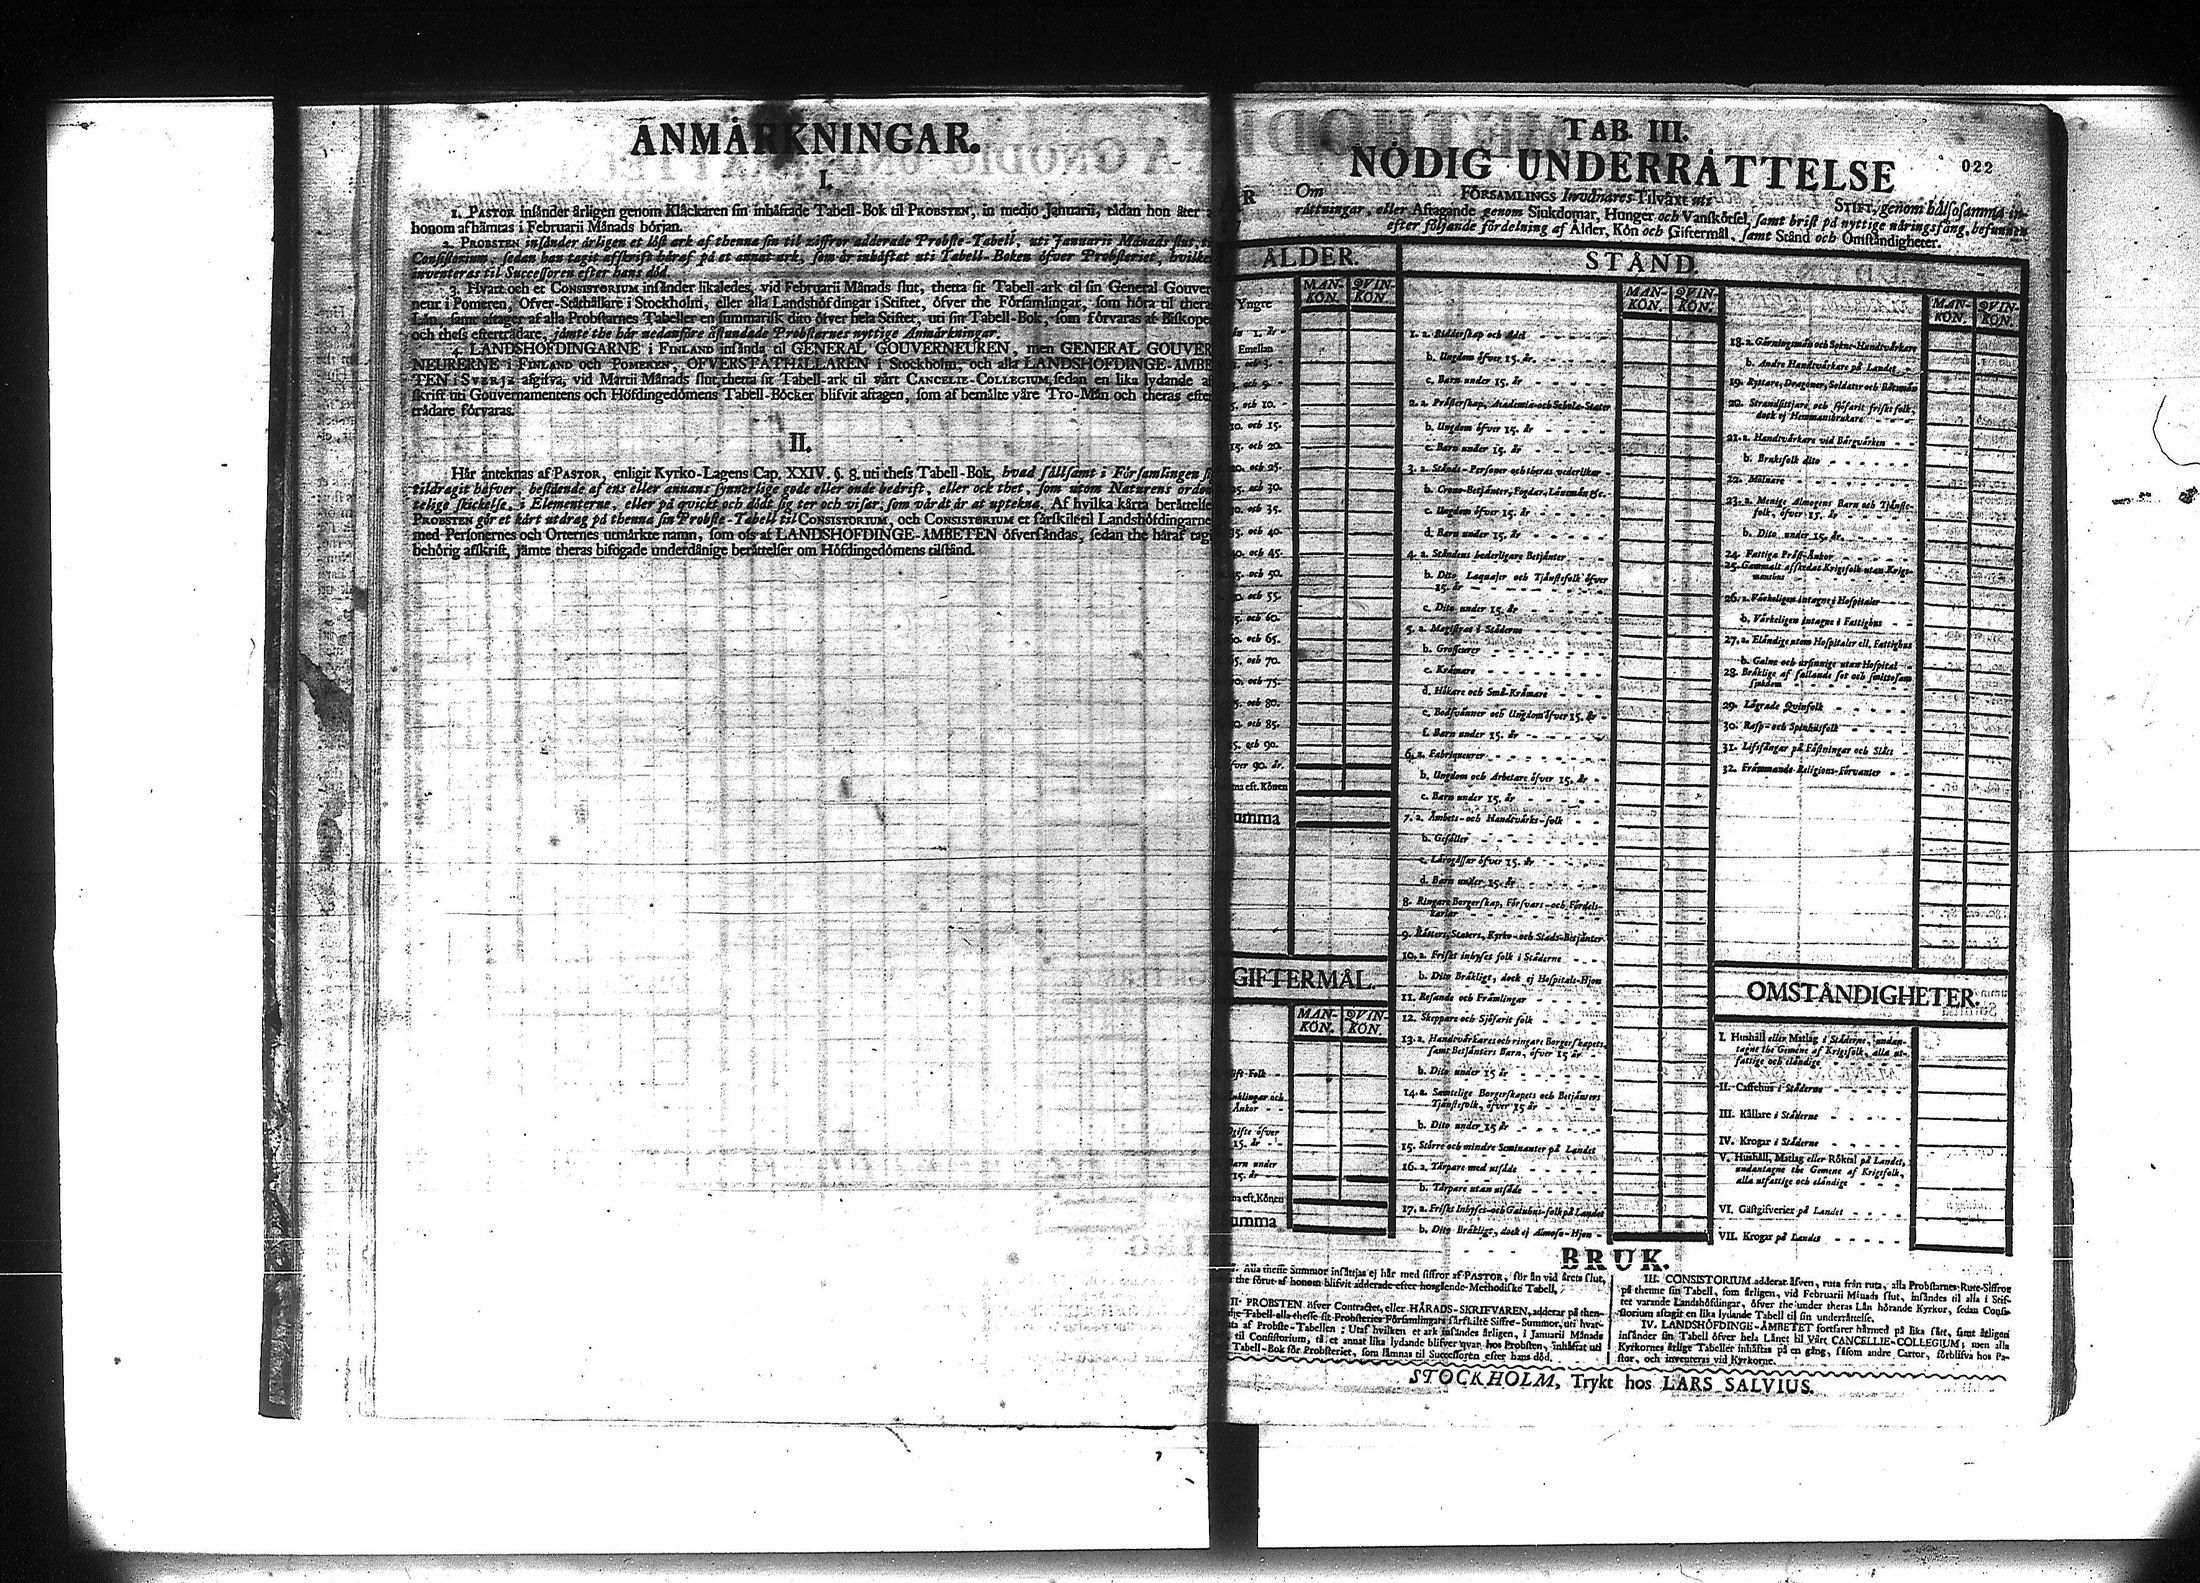 ANMÅRKNINGAR.
I.
1. PASTOR insånder årligen genom Klåckaren sin inhåftade Tabell-Bok til PROBSTEN, in medio Januarii, tådan hon åter
honom afhåmtas i Februarii Månads början.
2. PROBSTEN insånder årligen et löst ark af thenna sin til ziffror adderade Probste-Tabell, uti Januarii Månads slut,
Consistorium, sedan han tagit afskrift håraf på et annat ark, som år inhåftat uti Tabell-Boken öfver Probsteriet,
inventeras til Successoren efter hans död.
3. Hvart och et CONSISTORIUM insånder likaledes, vid Februarii Månads slut, thetta sit Tabell-ark til sin General Gouver
neur i Pomeren, Öfver-Ståthållare i Stockholm, eller alla Landshöfdingar i Stiftet, öfver the Församlingar, som höra til
Lån, samt aftager af alla Probstarnes Tabeller en summarisk dito öfver hela Stiftet, uti sin Tabell-Bok, som förvaras af
och thess eftertrådare, jåmte the hår nedanföre åstundade Probstarnes nyttige Anmårkningar.
4. LANDSHÖFDINGARNE i FINLAND insånda til GENERAL GOUVERNEUREN, men GENERAL GOUVER
NEURERNE i FINLAND och POMEREN, ÖFVERSTÅTHÅLLAREN i Stockholm, och alla LANDSHÖFDINGE-ÅMBE
TEN i SVERJE afgifva, vid Martii Månads slut, thetta sit Tabell-ark til vårt CANCELIE-COLLEGIUM, sedan en lika lydande
skrift uti Gouvernamentens och Höfdingedömens Tabell-Böcker blifvit aftagen, som af bemålte våre Tro-Mån och theras efter
trådare förvaras.
II.
Hår anteknas af PASTOR, enligit Kyrko-Lagens Cap. XXIV. §. 8. uti thess Tabell-Bok, hvad sållsamt i Församlingen
tildragit håfver, bestående af ens eller annans synnerlige gode eller onde bedrift, eller ock thet, som utom Naturens
telige skickelse, i Elementerne, eller på qvickt och dödt sig ter och visar, som vårdt år at uptekna. Af hvilka kårta beråttelse
PROBSTEN gör et kårt utdrag på thenna sin Probste-Tabell til CONSISTORIUM, och CONSISTORIUM et sårskilt til Landshöfdingarne
med Personernes och Orternes utmårkte namn, som oss af LANDSHÖFDINGE-ÅMBETEN öfversåndas, sedan the håraf
behörig afskrift, jåmte theras bifogade underdånige beråttelser om Höfdingedömens tilstånd.
TAB. III.
022
NÖDIG UNDERRÅTTELSE
Om FÖRSAMLINGS Invånares Tilväxt uti STIFT, genom hålsosamma in-
råttningar, eller Aftagande genom Sjukdomar, Hunger och Vanskötsel, samt brist på nyttige nåringsfång, befunnen
efter följande fördelning af Ålder, Kön och Giftermål, samt Stånd och Omståndigheter.
ÅLDER.
MAN-KÖN. QVIN-KÖN.
Yngre
1. år
Emellan
och 3.
och 9.
5. och 10.
10. och 15.
15. och 20.
20. och 25.
25. och 30.
30. och 35.
35. och 40.
40. och 45.
och 50.
och 55.
och 60.
och 65.
och 70.
och 75.
och 80.
och 85.
och 90.
90. år.
eft. Könen
umma
GIFTERMÅL.
MAN-KÖN. QVIN-KÖN.
ift-Folk
nklingar och
Ånkor
gifte öfver
15. år
arn under
15. år
eft. Könen
umma
STÅND.
MAN-KÖN. QVIN-KÖN.
1. a. Ridderskap och Adel
b. Ungdom öfver 15. år
c. Barn under 15. år
2. a. Pråsterskap, Academie-och Schole-Stater
b. Ungdom öfver 15. år
c. Barn under 15. år
3. a. Stånds-Personer och theras vederlikar
b. Crono-Betjånter, Fogdar, Lånsmån &c.
c. Ungdom öfver 15. år
d. Barn under 15. år
4. a. Ståndens hederligare Betjånter
b. Dito Laquajer och Tjånstefolk öfver
15. år
c. Dito under 15. år
5. a. Magistrat i Ståderne
b. Grosseurer
c. Kråmare
d. Håkare och Små-Kråmare
e. Bodsvånner och Ungdom öfver 15. år
f. Barn under 15. år
6. a. Fabriqueurer
b. Ungdom och Arbetare öfver 15. år
c. Barn under 15. år
7. a. Åmbets-och Handtvårks-folk
b. Gesåller
c. Lårogåssar öfver 15. år
d. Barn under 15. år
8. Ringare Borgerskap, Försvars-och Fördels-
karlar
9. Råtters, Staters, Kyrko-och Stads-Betjånter
10. a. Friskt inhyses folk i Ståderne
b. Dito Bråkligt, dock ej Hospitals-Hjon
11. Resande och Fråmlingar
12. Skeppare och Sjöfarit folk
13. a. Handtvårkares och ringare Borgerskapets,
samt Betjånters Barn, öfver 15 år
b. Dito under 15 år
14. a. Samtelige Borgerskapets och Betjånters
Tjånstefolk, öfver 15 år
b. Dito under 15 år
15. Större och mindre Seminanter på Landet
16. a. Torpare med utsåde
b. Torpare utan utsåde
17. a. Friskt Inhyses-och Gatuhus-folk på Landet
b. Dito Bråkligt, dock ej Almoso-Hjon
MAN-KÖN. QVIN-KÖN.
18. a. Gårningsmån och Sokne-Handtvårkare
b. Andre Handtvårkare på Landet
19. Ryttare, Dragoner, Soldater och Båtsmån
20. Strandsittjare, och sjöfarit friskt folk,
dock ej Hemmansbrukare
21. a. Handtvårkare vid Bårgvårken
b. Bruksfolk dito
22. Mölnare
23. a. Menige Almogens Barn och Tjånste-
folk, öfver 15. år
b. Dito under 15. år
24. Fattiga Pråst-Ånkor
25. Gammalt afskedat Krigsfolk utan Krigs-
mansbus
26. a. Vårkeligen intagne i Hospitaler
b. Vårkeligen intagne i Fattighus
27. a. Elåndige utom Hospitaler ell. Fattighus
b. Galne och ursinnige utan Hospital
28. Bråklige af fallande sot och smittosam
sjukdom
29. Lågrade Qvinfolk
30. Rasp-och Spinhusfolk
31. Lifsfångar på Fåstningar och Slått
32. Fråmmande Religions-Förvanter
OMSTÅNDIGHETER.
I. Hushåll eller Matlag i Ståderne, undan-
tagne the Gemene af Krigsfolk, alla ut-
fattige och elåndige
II. Caffehus i Ståderne
III. Kållare i Ståderne
IV. Krogar i Ståderne
V. Hushåll, Matlag eller Röktal på Landet,
undantagne the Gemene af Krigsfolk,
alla utfattige och elåndige
VI. Gåstgifverier på Landet
VII. Krogar på Landet
BRUK.
Alla thesse Summor insåttjas ej hår med siffror af PASTOR, för ån vid årets slut,
the förut af honom blifvit adderade efter hosgående Methodiske Tabell.
II. PROBSTEN öfver Contractet, eller HÅRADS-SKRIFVAREN, adderar på then-
Tabell alla thesse sit Probsteries Församlingars sårskilte Siffre-Summor, uti hvar-
af Probste-Tabellen; Utaf hvilken et ark insåndes årligen, i Januarii Månads
til Consistorium, et annat lika lydande blifver qvar hos Probsten, inhåftat uti
Tabell-Bok för Probsteriet, som låmnas til Successoren efter hans död.
III. CONSISTORIUM adderar åfven, ruta från ruta, alla Probstarnes Rute-Siffror
på thenne sin Tabell, som årligen, vid Februarii Månads slut, insåndes til alla i Stif-
tet varande Landshöfdingar, öfver the under theras Lån hörande Kyrkor, sedan Consi-
storium aftagit en lika lydande Tabell til sin underråttelse.
IV. LANDSHÖFDINGE-ÅMBETET fortfarer hårmed på lika sått, samt årligen
insånder sin Tabell öfver hela Lånet til Vårt CANCELLIE-COLLEGIUM; men alla
Kyrkornes årlige Tabeller inhåftas på en gång, såsom andre Cartor, förblifva hos Pa-
stor, och inventeras vid Kyrkorne.
STOCKHOLM, Trykt hos LARS SALVIUS.